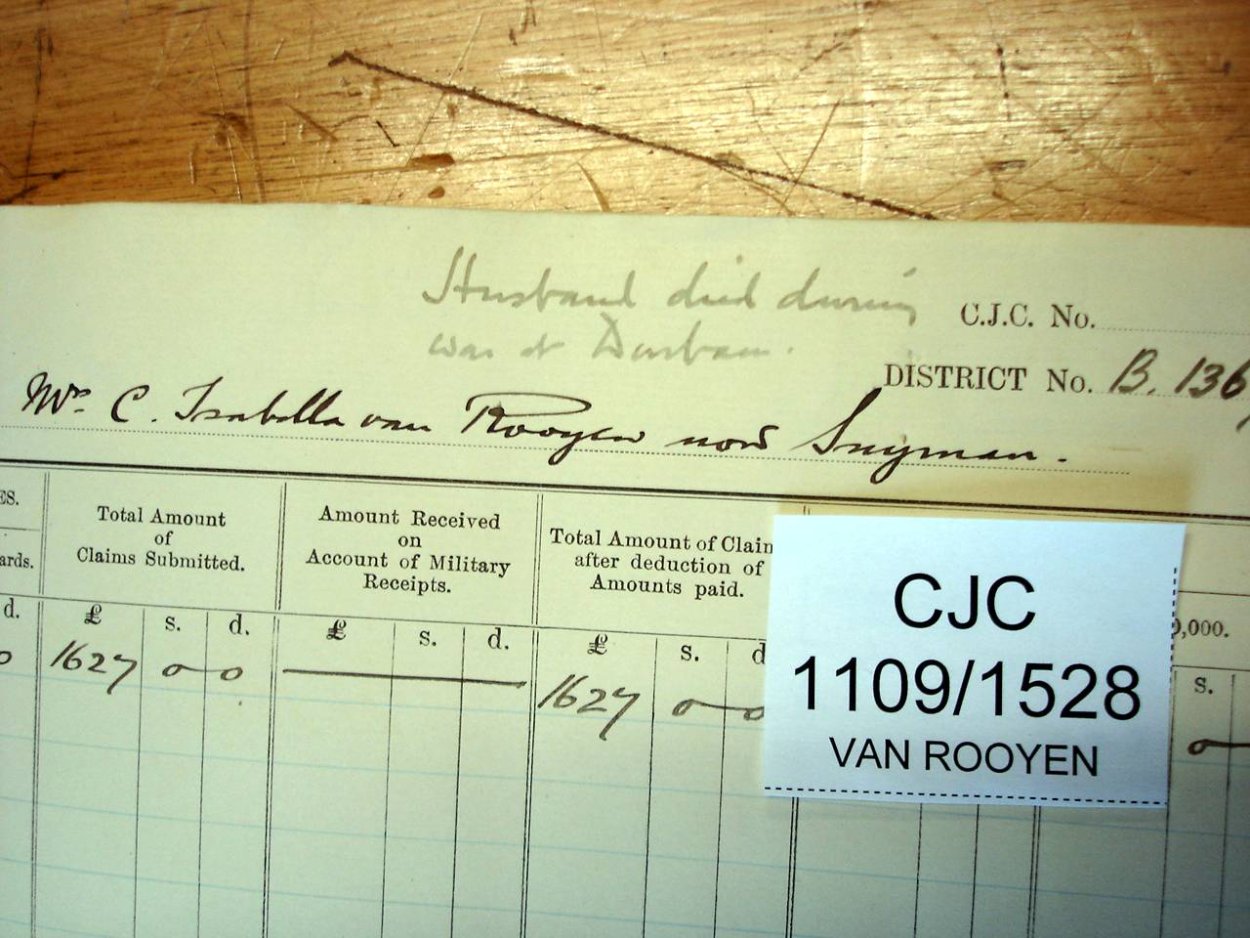 Husband died during
war at Durban.
C.J.C. No.
DISTRICT No. B. 136
Mrs. C. Isabella van Rooyen now Snyman.
ES.
ards.
d.
o
Total Amount
of
Claims Submitted.
£ s. d.
1627 o o
Amount Received
on
Account of Military
Receipts.
£ s. d.
Total Amount of Claim
after deduction of
Amounts paid.
£ s. d
1627 o o
0,000.
s.
o
CJC
1109/1528
VAN ROOYEN